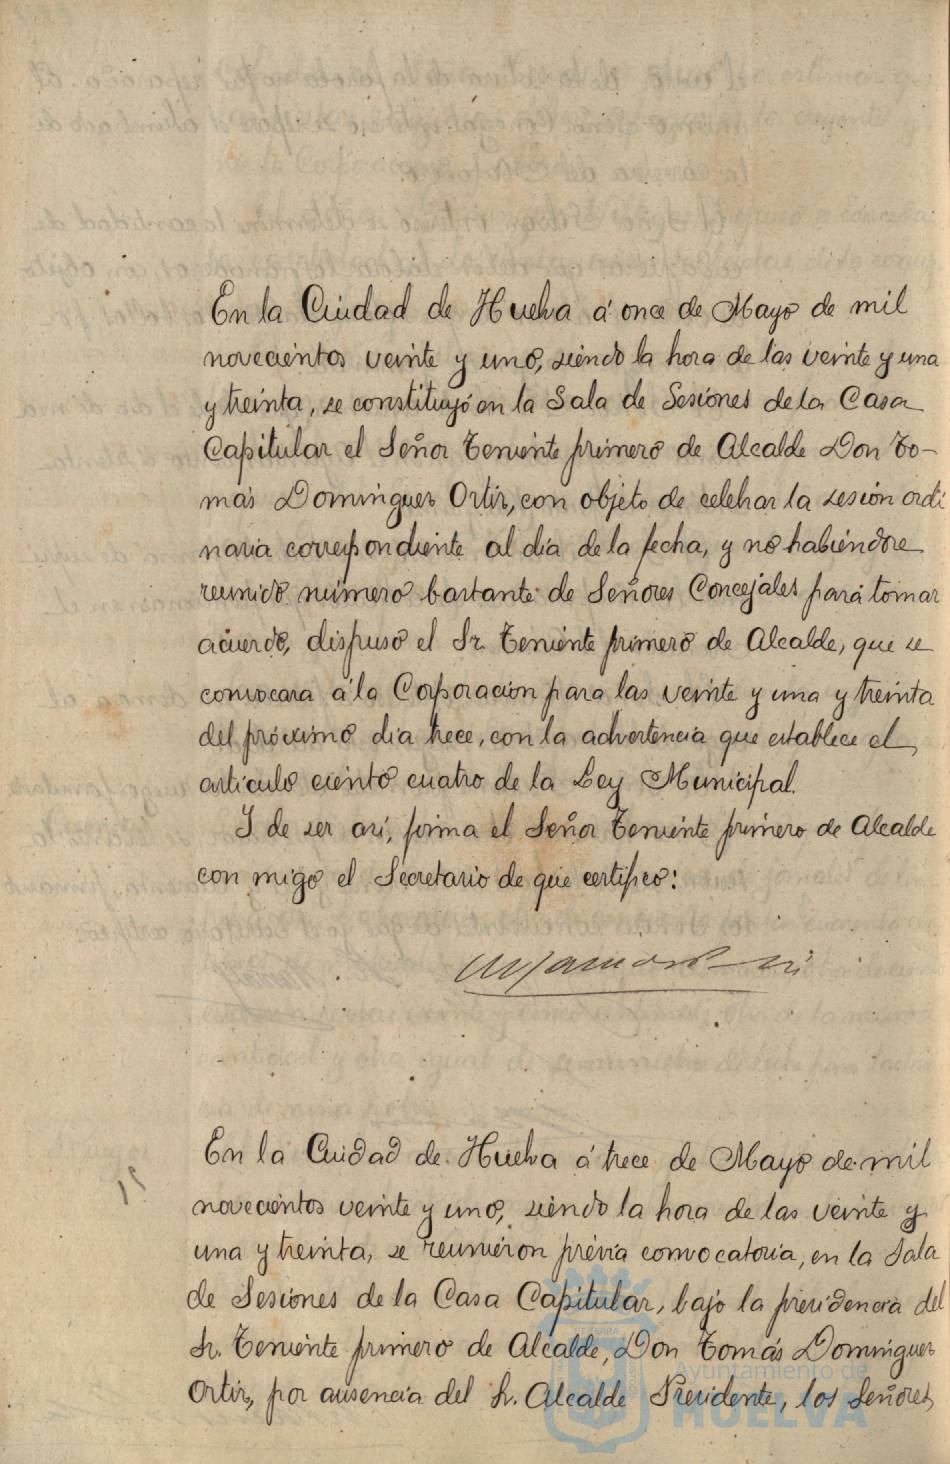 En la Ciudad de Huelva á once de Mayo de mil
novecientos veinte y uno, siendo la hora de las veinte y una
y treinta, se constituyó en la Sala de Sesiones de la Casa
Capitular el Señor Teniente primero de Alcalde Don To-
más Dominguez Ortiz, con objeto de celebrar la sesión ordi
naria correspondiente al día de la fecha, y no habiéndose
reunido número bastante de Señores Concejales para tomar
acuerdo, dispuso el Sr. Teniente primero de Alcalde, que se
convocara á la Corporación para las veinte y una y treinta
del próximo día trece, con la advertencia que establece el
artículo ciento cuatro de la Ley Municipal.
Y de ser así, firma el Señor Teniente primero de Alcalde
con migo el Secretario de que certifico:
En la Ciudad de Huelva á trece de Mayo de mil
novecientos veinte y uno, siendo la hora de las veinte y
una y treinta, se reunieron prévia convocatoria, en la Sala
de Sesiones de la Casa Capitular, bajo la presidencia del
Sr. Teniente primero de Alcalde, Don Tomás Dominguez
Ortiz, por ausencia del Sr. Alcalde Presidente, los Señores
Ayuntamiento de
HUELVA